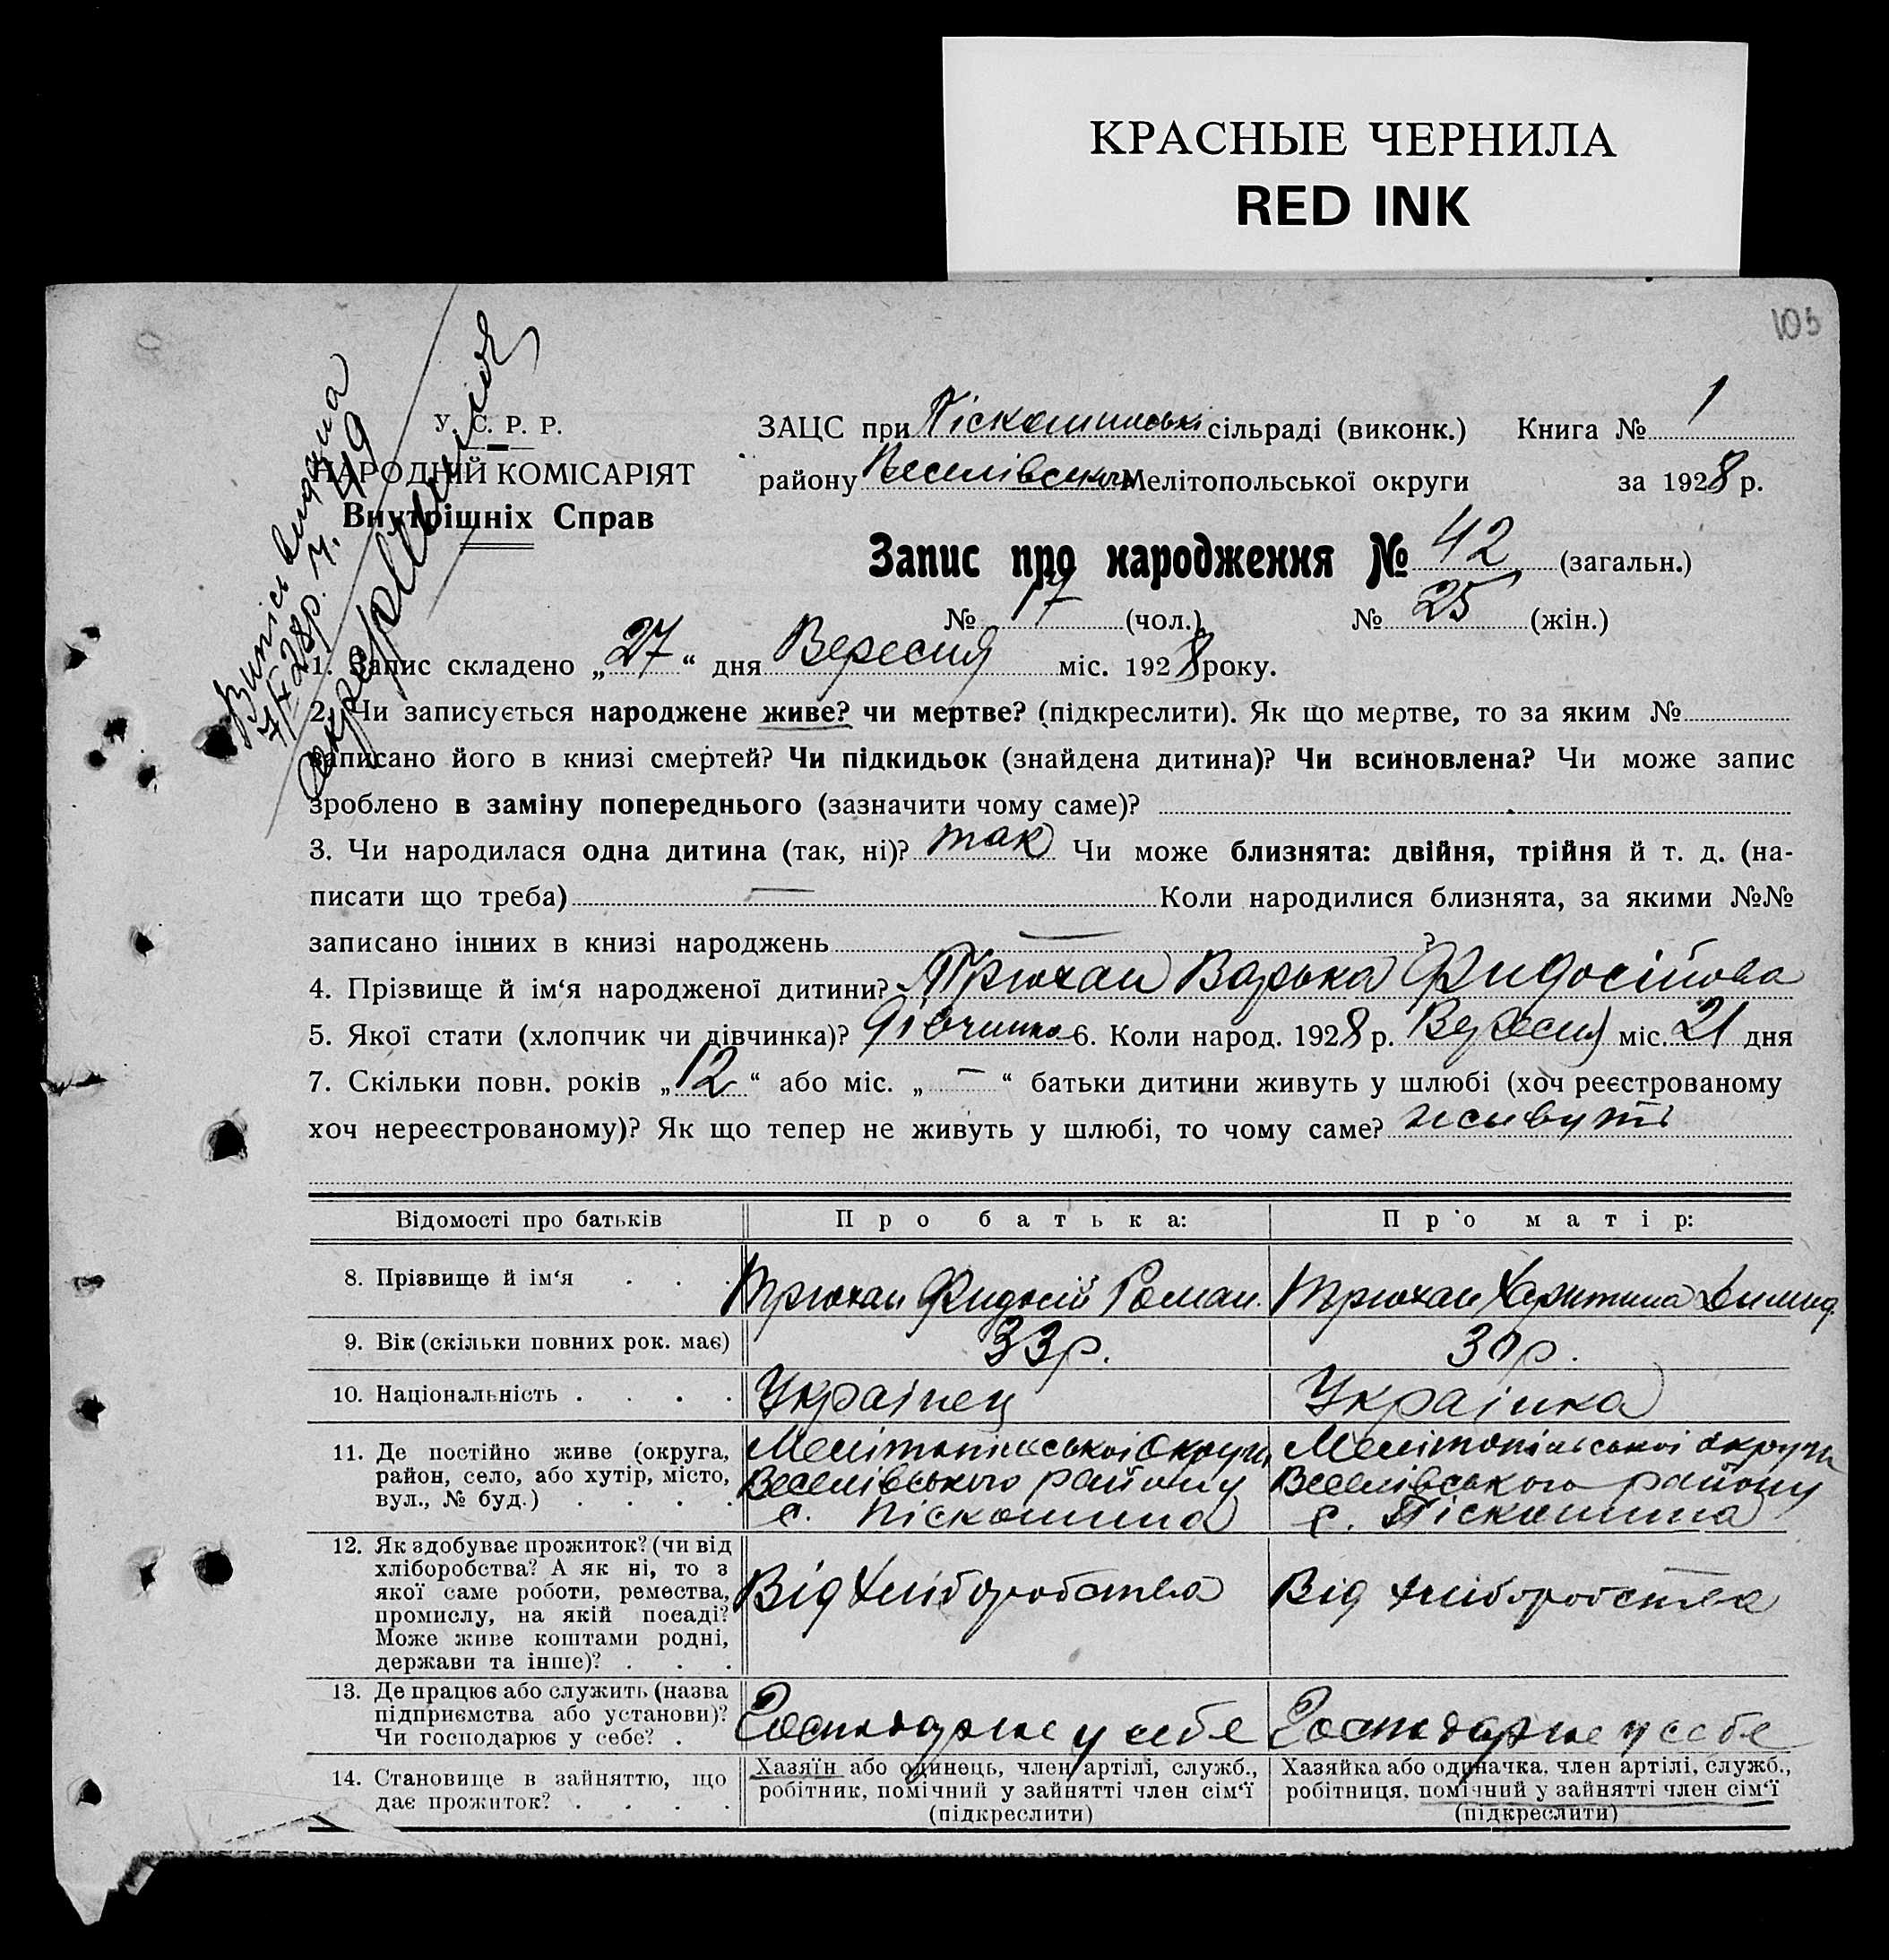 КРАСНЫЕ ЧЕРНИЛА
RED INK
105
У. С. Р. Р.
НАРОДНІЙ КОМІСАРІЯТ
Внутрішніх Справ
Випісь видана
ЗАЦС при Піскошинські сільраді (виконк.) Книга № 1
району Веселівського Мелітопольської округи за 1928 р.
Запис про народження № 42 (загальн.)
№ 17 (чол.) № 25 (жін.)
1. Запис складено „27“ дня Вересня міс. 1928 року.
2. Чи записується народжене живе? чи мертве? (підкреслити). Як що мертве, то за яким №
записано його в книзі смертей? Чи підкидьок (знайдена дитина)? Чи всиновлена? Чи може запис
зроблено в заміну попереднього (зазначити чому саме)?
3. Чи народилася одна дитина (так, ні)? так Чи може близнята: двійня, трійня й т. д. (на-
писати що треба) — Коли народилися близнята, за якими №№
записано інших в книзі народжень — ?
4. Прізвище й ім‘я народженої дитини? Трюхан Варька Фидосійова
5. Якої стати (хлопчик чи дівчинка)? Дівчинка 6. Коли народ. 1928 р. Вересня міс. 21 дня
7. Скільки повн. років „12“ або міс. „—“ батьки дитини живуть у шлюбі (хоч реєстрованому
хоч нереєстрованому)? Як що тепер не живуть у шлюбі, то чому саме? живуть
Відомості про батьків Про батька: Про матір:
8. Прізвище й ім‘я Трюхан Фидосій Роман. Трюхан Харитина Димид.
9. Вік (скільки повних рок. має) 33 р. 30 р.
10. Національність Українец Українка
11. Де постійно живе (округа, район, село, або хутір, місто, вул., № буд.)
Мелітопільської округи Веселівського району с. Піскошина
Мелітопільської округи Веселівського району с. Піскошина
12. Як здобуває прожиток? (чи від
хліборобства? А як ні, то з
якої саме роботи, ремества,
промислу, на якій посаді?
Може живе коштами родні,
держави та інше)?
Від хліборобства Від хліборобства
13. Де працює або служить (назва
підприємства або установи)?
Чи господарює у себе?
Господарює у себе Господарює у себе
14. Становище в зайняттю, що
дає прожиток?
Хазяїн або одинець, член артілі, служб.,
робітник, помічний у зайнятті член сім‘ї
(підкреслити)
Хазяйка або одиначка, член артілі, служб.,
робітниця, помічний у зайнятті член сім‘ї
(підкреслити)